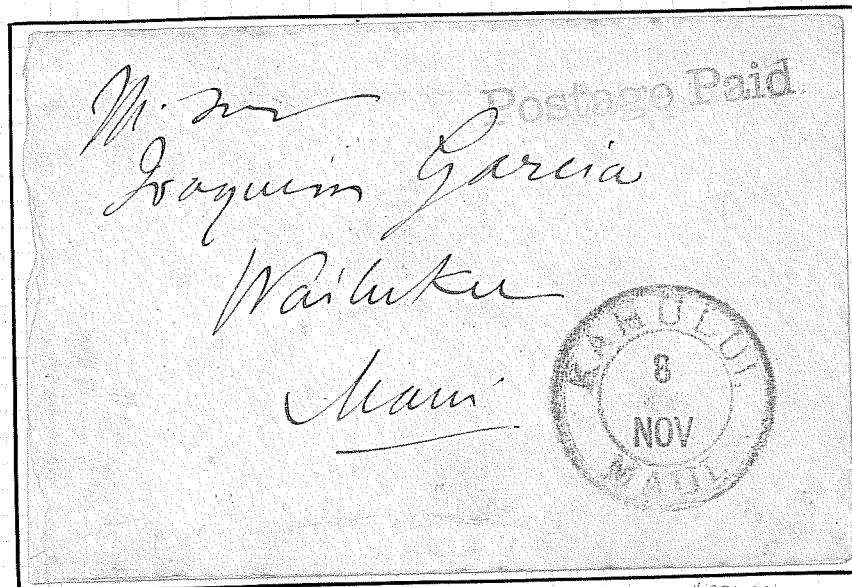 Postage Paid
Joaquim Garcia
Wailuku
Maui
KAHULUI.
8
NOV
MAUI.